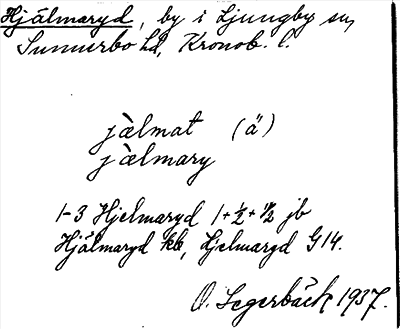 Hjälmaryd, by i Ljungby sn,
Sunnerbo hd, Kronob. l.
jälmat (ä)
jälmary
1-3 Hjelmaryd 1+½+½ jb
Hjälmaryd kb, Hjelmaryd G14.
O. Segerbäck 1937.